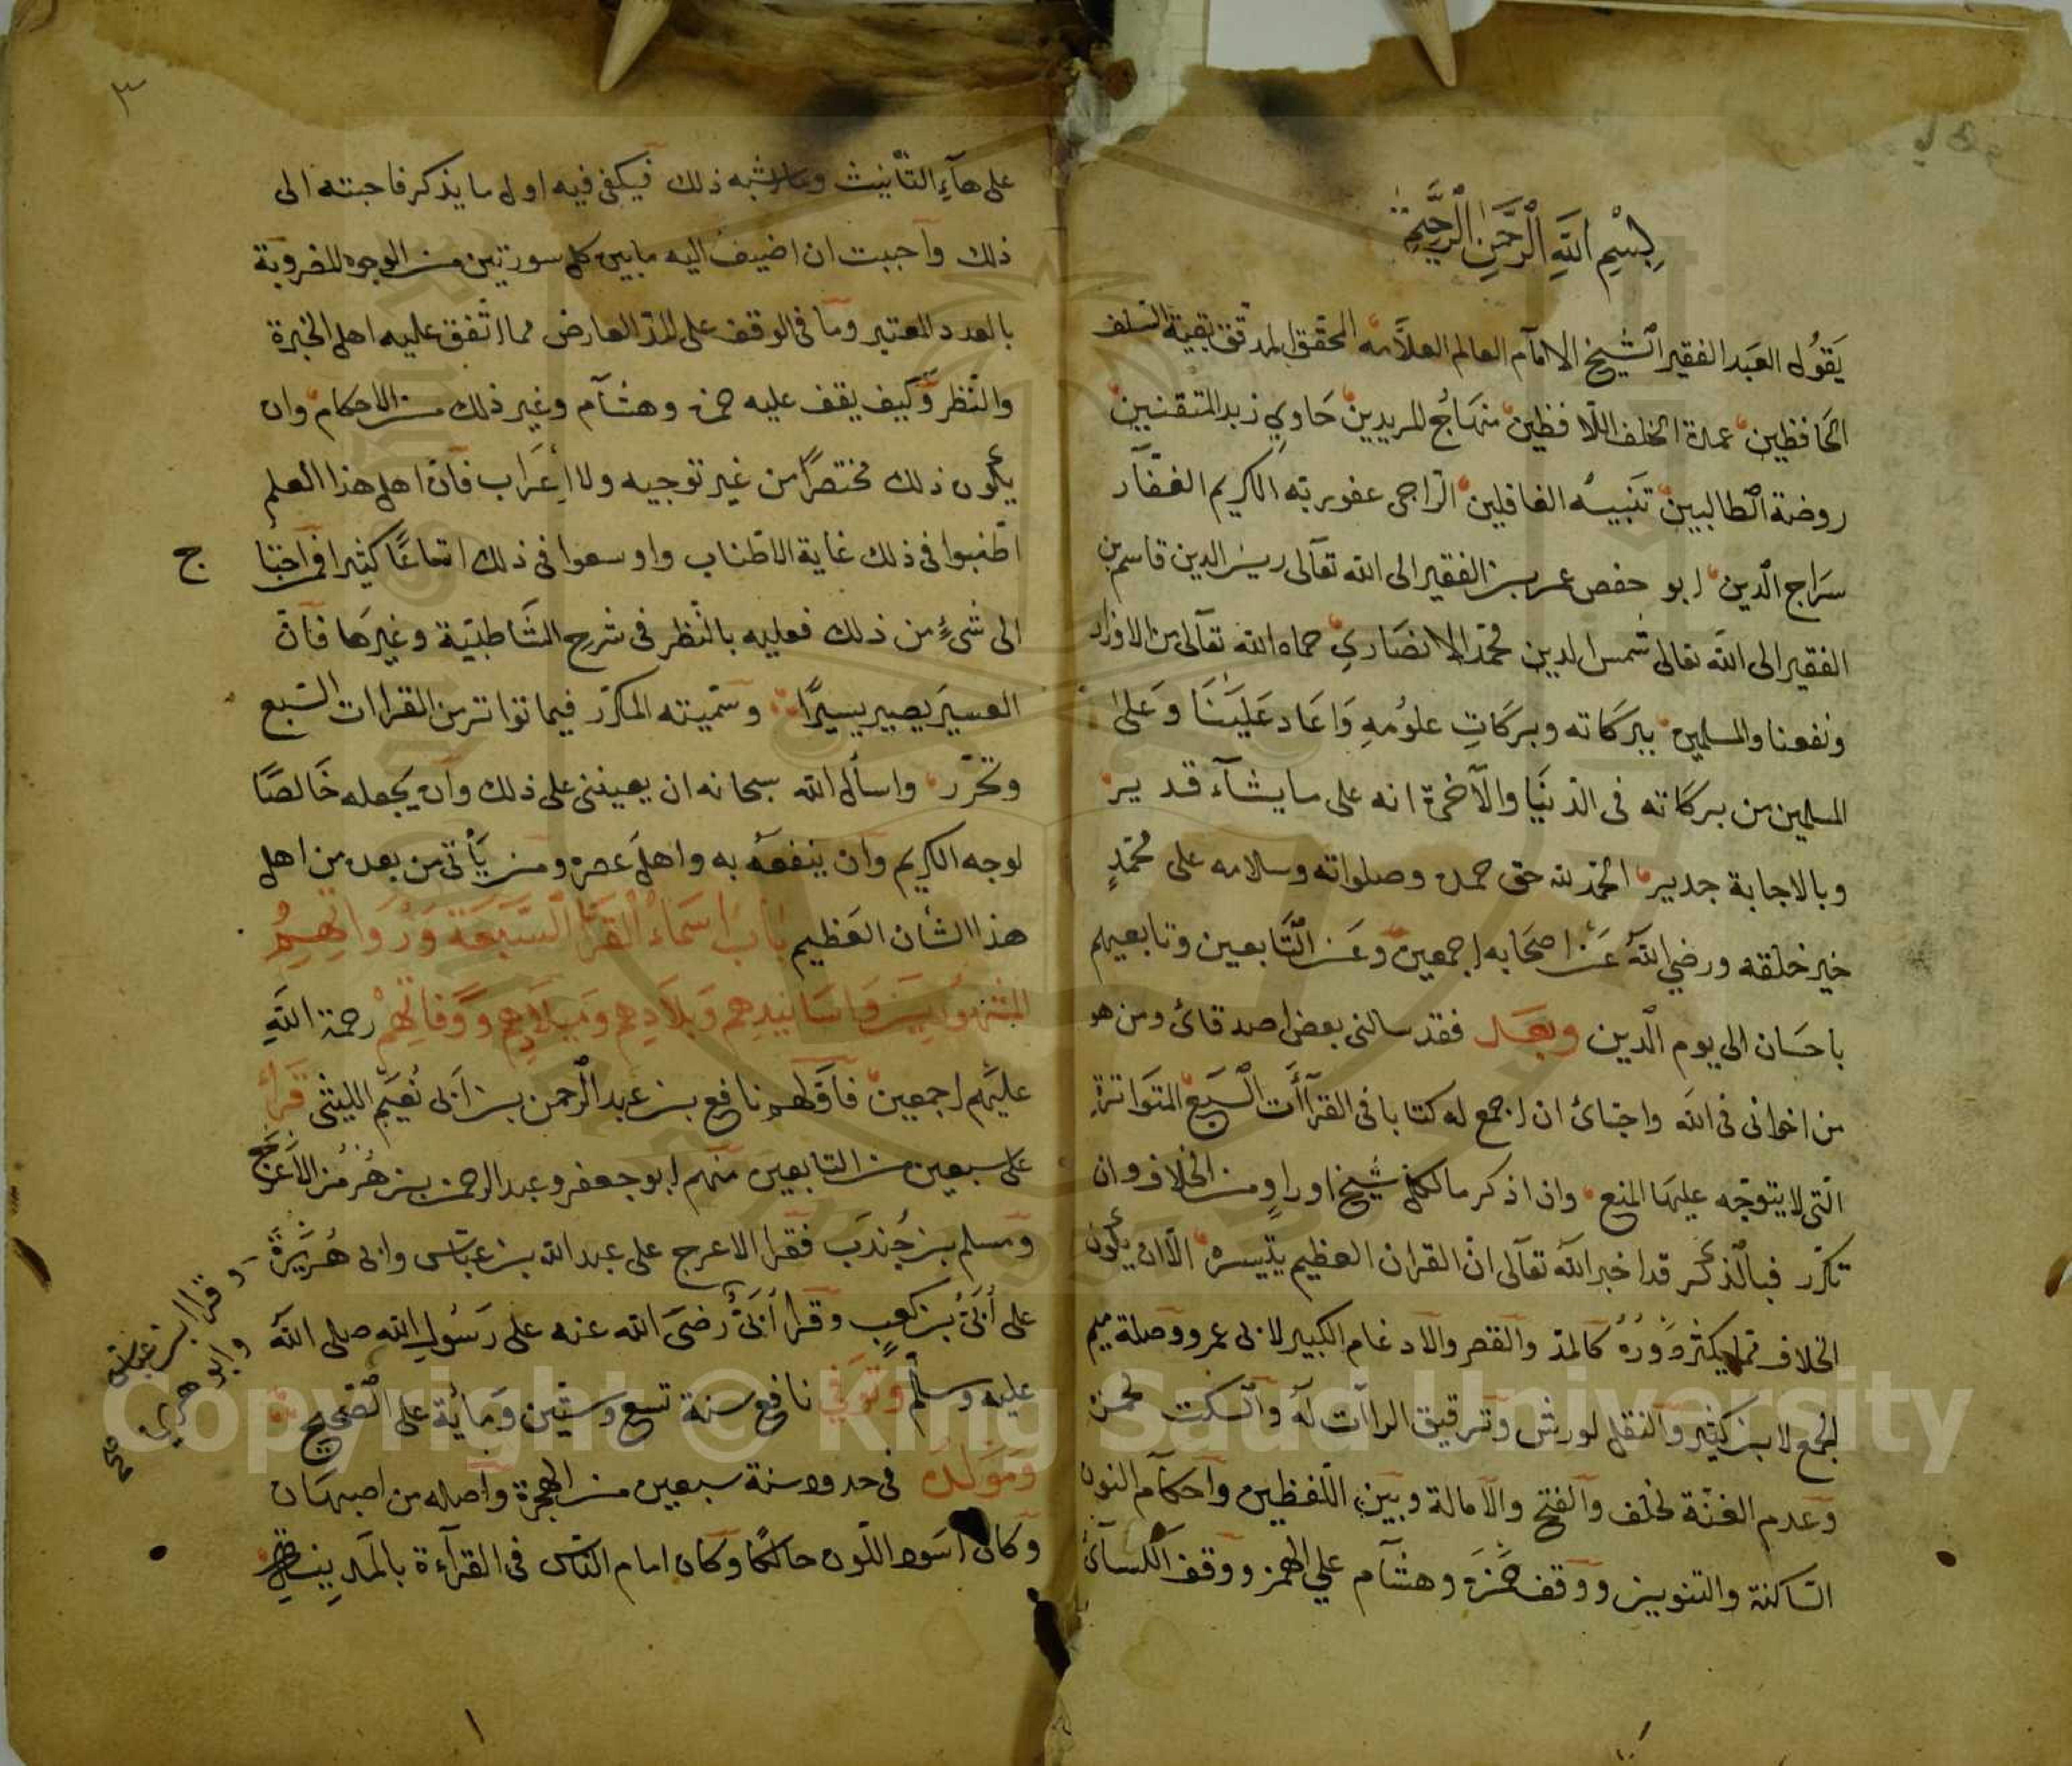 بِسْمِ اللَّهِ الرَّحْمَنِ الرَّحِيمِ
يَقُولُ العَبد الفقير الشيخ الامام العالم العلامه المحقق المدقق بقية السلف
الحَافظين عمدة الخلف اللافظين منهَاجُ المريدين حَاوي زبد المتقنين
روضة الطالبين تَنبيه الغافلين الرّاجى عفو ربه الكريم الغفّار
سرَاج الدين ابو حفص عمر بن الفقير الى الله تعَالى زين الدين قاسم بن
الفقير الى الله تعالى شمس الدين محمّد الانصَاري حماه الله تعالى من الاوزار
ونفعنا والمسلمين ببركاته وبركَاتِ علومهِ وَاعَاد عَلَيْنَا وَعَلى
المسلمين من بركاته فى الدنيَا والآخرة انه على ما يشآء قدير
وبالاجابة جدير الحمد لله حق حمده وصلواته وسلامه على محمّدٍ
خير خلقه ورضي الله عَن اصحَابه اجمعين وعَن التَابعين وتابعيهم
باحسَان الى يوم الدين وبعد فقد سالنى بعض اصدقائ ومن هو
من اخوانى فى الله واحبائ ان اجمع له كتابا فى القرآآت السَّبع المتوَاترة
الّتى لا يتوجّه عليهَا المنع وان اذكر ما لكل شيخ اوراوٍ من الخلاف وان
تكرّر فبالذكر قد اخبر الله تعالى انّ القران العظيم يتيسره الّا ان يكون
الخلاف مما يكثر دَوْرُهُ كالمدّ والقصر والادغام الكبير لابى عمرو وصلة ميم
الجمع لابن كثير والنقل لورش وترقيق الراآت له والسكت لحمزة
وعدم الغنّة لخلف والفتح والامالة وبين اللّفظين واحكام النون
السّاكنة والتنوين ووقف حَمزَة وهشام علي الهمز ووقف الكسائ
٣
على هآءِ التأنيث وما اشبه ذلك فيكفى فيه اول ما يذكر فاجبته الى
ذلك واحببت ان اضيف اليه ما بين كل سورتين من الوجوه المضروبة
بالعدد المعتبر وما فى الوقف على المدّ العارض مما اتّفق عليه اهل الخبرة
والنّظر وكيف يقف عليه حمزة وهشام وغير ذلك من الاحكام وان
يكون ذلك مختصرًا من غير توجيه ولا إعرَاب فانّ اهل هذا العلم
اطنبوا فى ذلك غاية الاطناب واوسعوا فى ذلك اتساعًا كثيرا فمن احتا
ج
الى شىءٍ من ذلك فعليه بالنّظر فى شرح الشّاطبيّة وغيرهَا فانّ
العسيرَ يصير يسيرًا وسمّيته المكرّر فيما تواتر من القراات السّبع
وتحرّر واسأل الله سبحانه ان يعيننى على ذلك وان يجعله خالصًا
لوجه الكريم وان ينفعَ به واهل عصره ومن يأتى من بعده من اهل
هذا الشان العَظيم بَابُ اسْمَاءُ القرّا السَّبعَة وَرُوَاتِهِمُ
المشهورين وَاسَانيدِهم وبلادِهم ومَيلَادِهم ووفَاتِهِمْ رحمة اللهِ
عليهم اجمعين فاولهم نافع بن عبد الرّحمن بن ابى نُعَيم الليثى قرأ
على سبعين من التابعين منهم ابو جعفر وعبد الرحمن بن هُرْمُز الاعرج
ومسلم بن جُندَب فقرا الاعرج على عبد الله بن عبّاس وابى هُرَيْرَة
وقرا ابن عباس
وابو هريرة
صح
على أُبَىّ بن كعبٍ وقرا أُبَىّ رضىَ الله عنه على رَسُولِ الله صلى الله
عليه وسلّم وتوفى نافع سنة تسع وستّين ومائة على الصّحيح
وَمَوْلدُه فى حدود سنة سبعين من الهجرة واصله من اصبهَان
وكان اسود اللّون حالكًا وكان امام النّاس فى القرآءة بالمَدِينةِ
Copyright © King Saud University